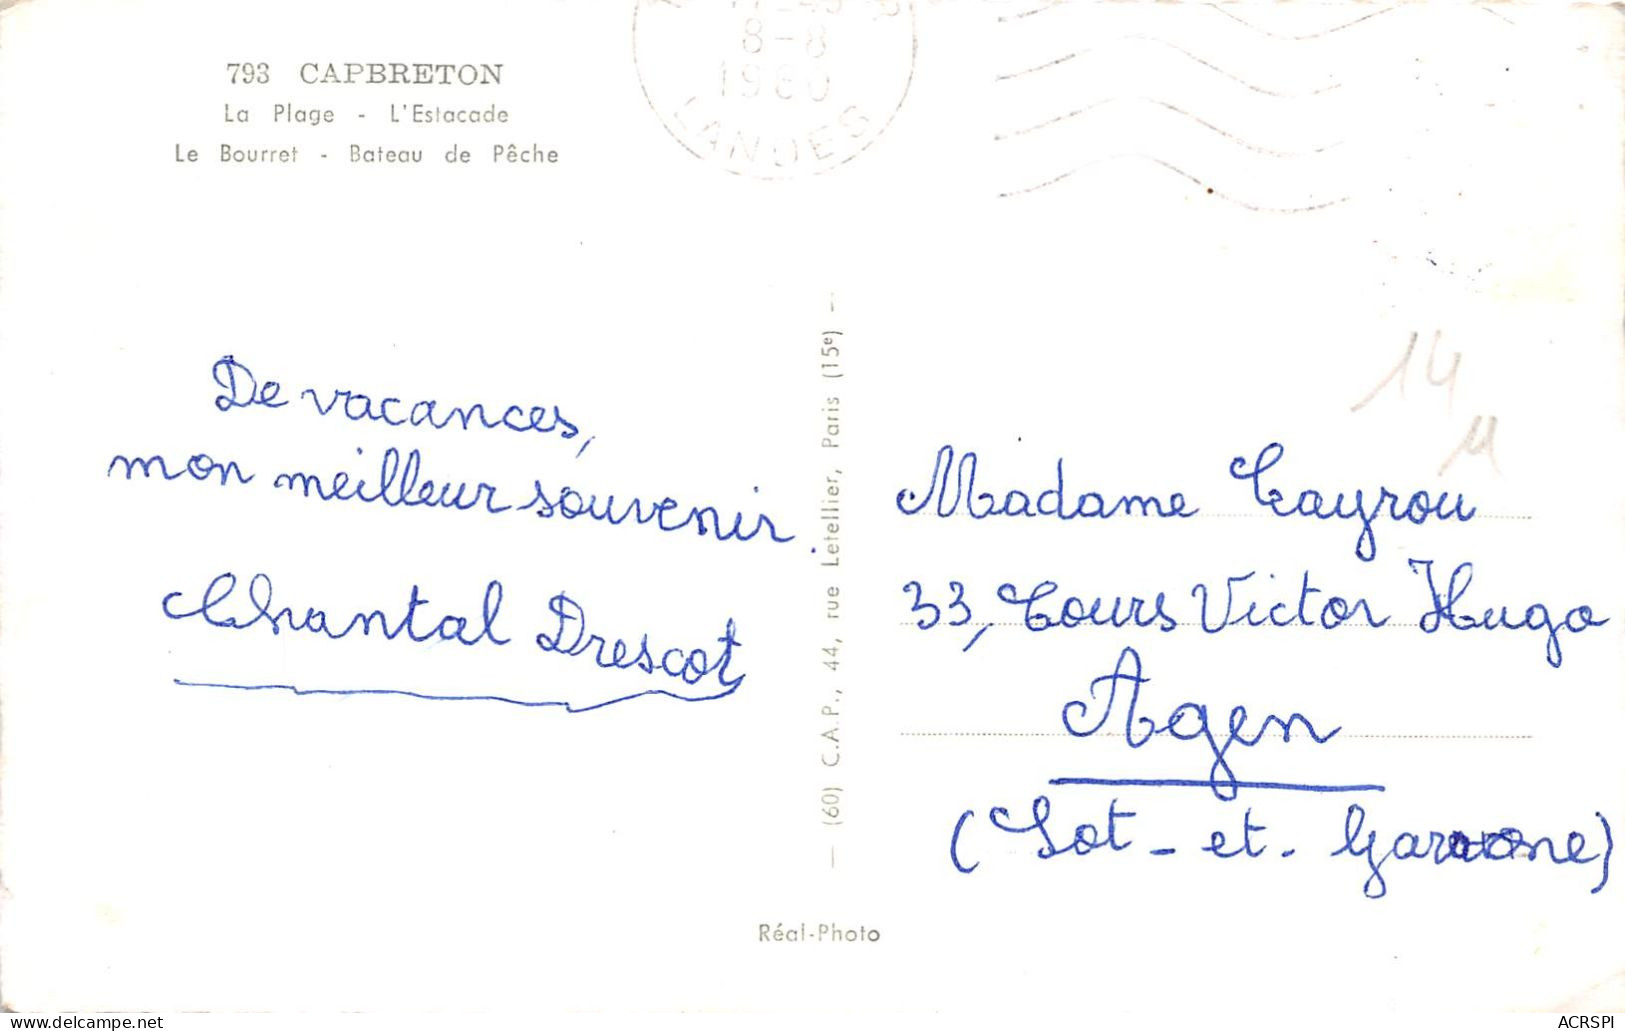 793 CAPBRETON
La Plage - L'Estacade
Le Bourret - Bateau de Pêche
8-8
1960
LANDES
De vacances,
mon meilleur souvenir.
Chantal Drescot
— (60) C.A.P., 44, rue Letellier, Paris (15e) —
Réal-Photo
14
Madame Cayrou
33, Cours Victor Hugo
Agen
(Lot-et-Garonne)
ACRSPI